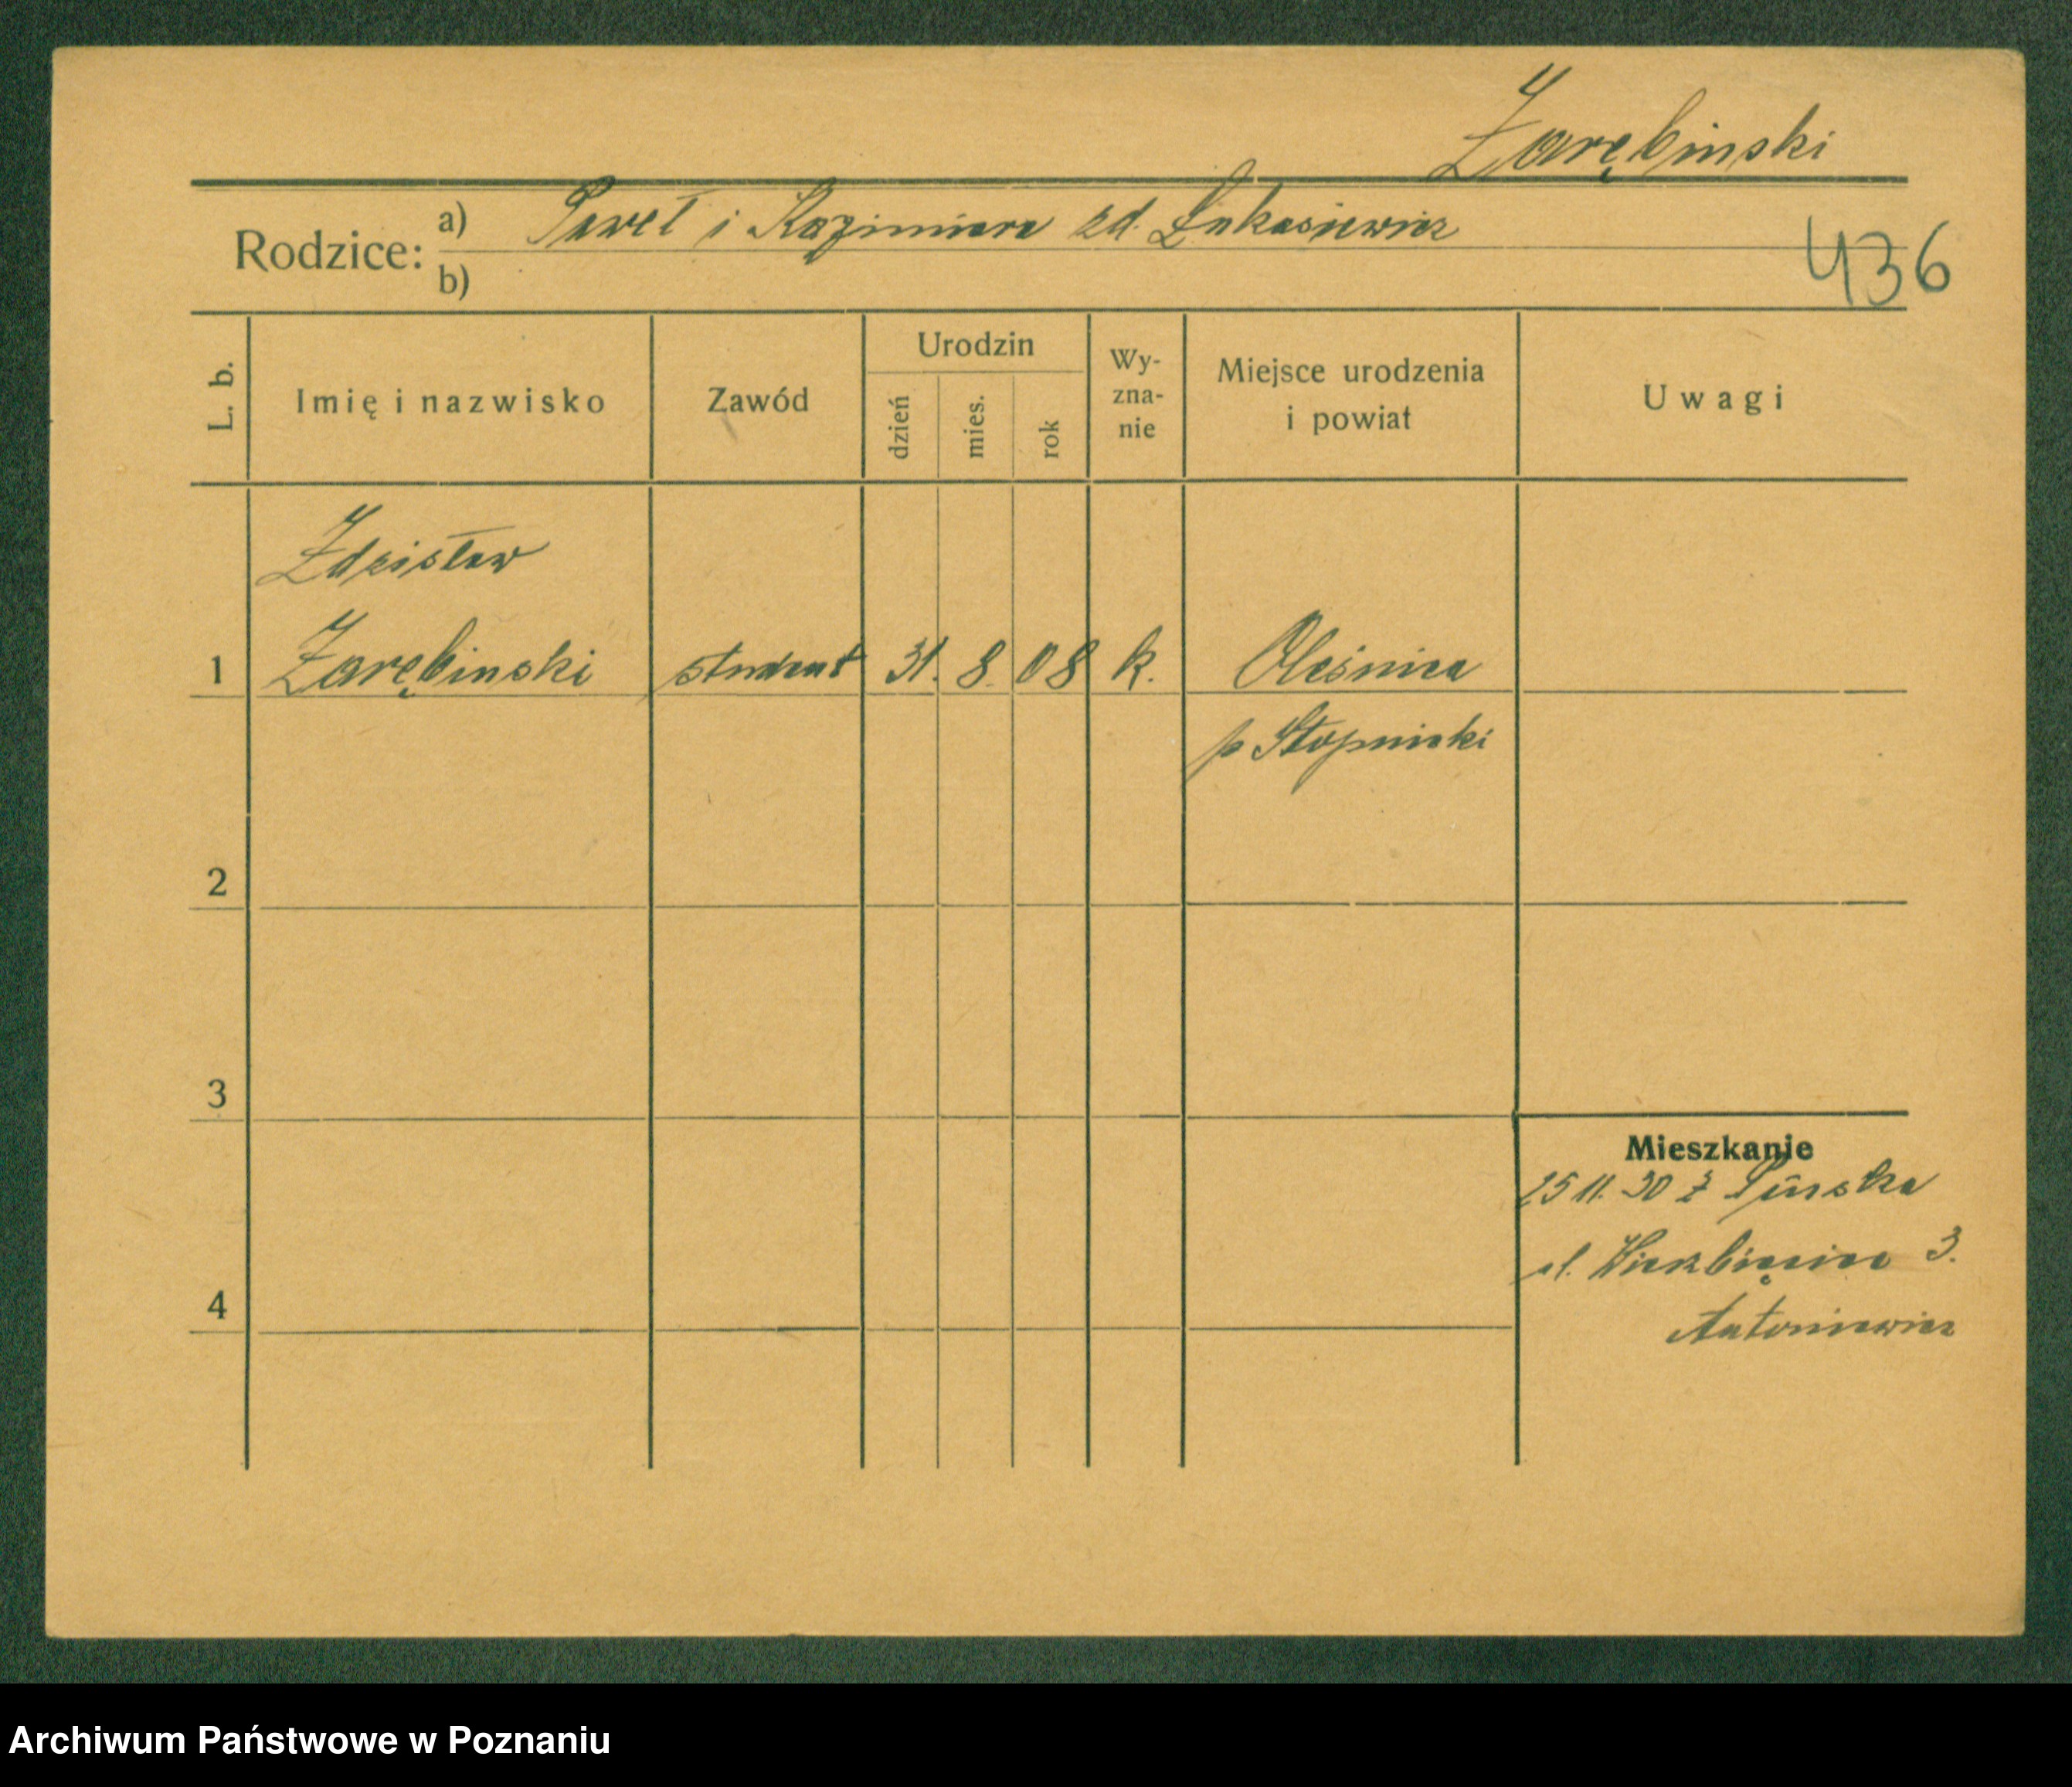 Zarębinski
Rodzice: a) Paweł i Kazimiera zd. Łukasiewicz
436
b)
L. b. Imię i nazwisko Zawód Urodzin dzień mies. rok Wy-zna-nie Miejsce urodzenia i powiat Uwagi
Zdzisław
1 Zarębinski student 31. 8. 08 k. Oleśnica
p Stopnicki
2
3
Mieszkanie
25 11. 30 z
ul. Wierzbięcice 3.
4
Antoniewicz
Archiwum Państwowe w Poznaniu